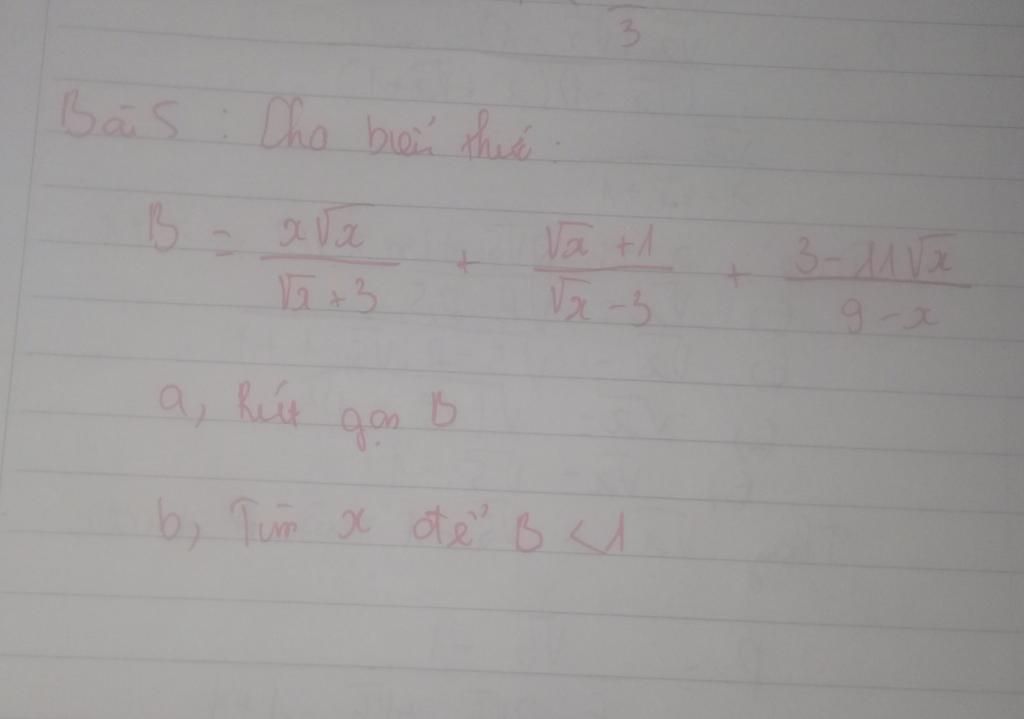 3
Bài 5 : Cho biểu thức :
B = \frac{x\sqrt{x}}{\sqrt{x}+3} + \frac{\sqrt{x}+1}{\sqrt{x}-3} + \frac{3-11\sqrt{x}}{9-x}
a, Rút gọn B
b, Tìm x để B < 1